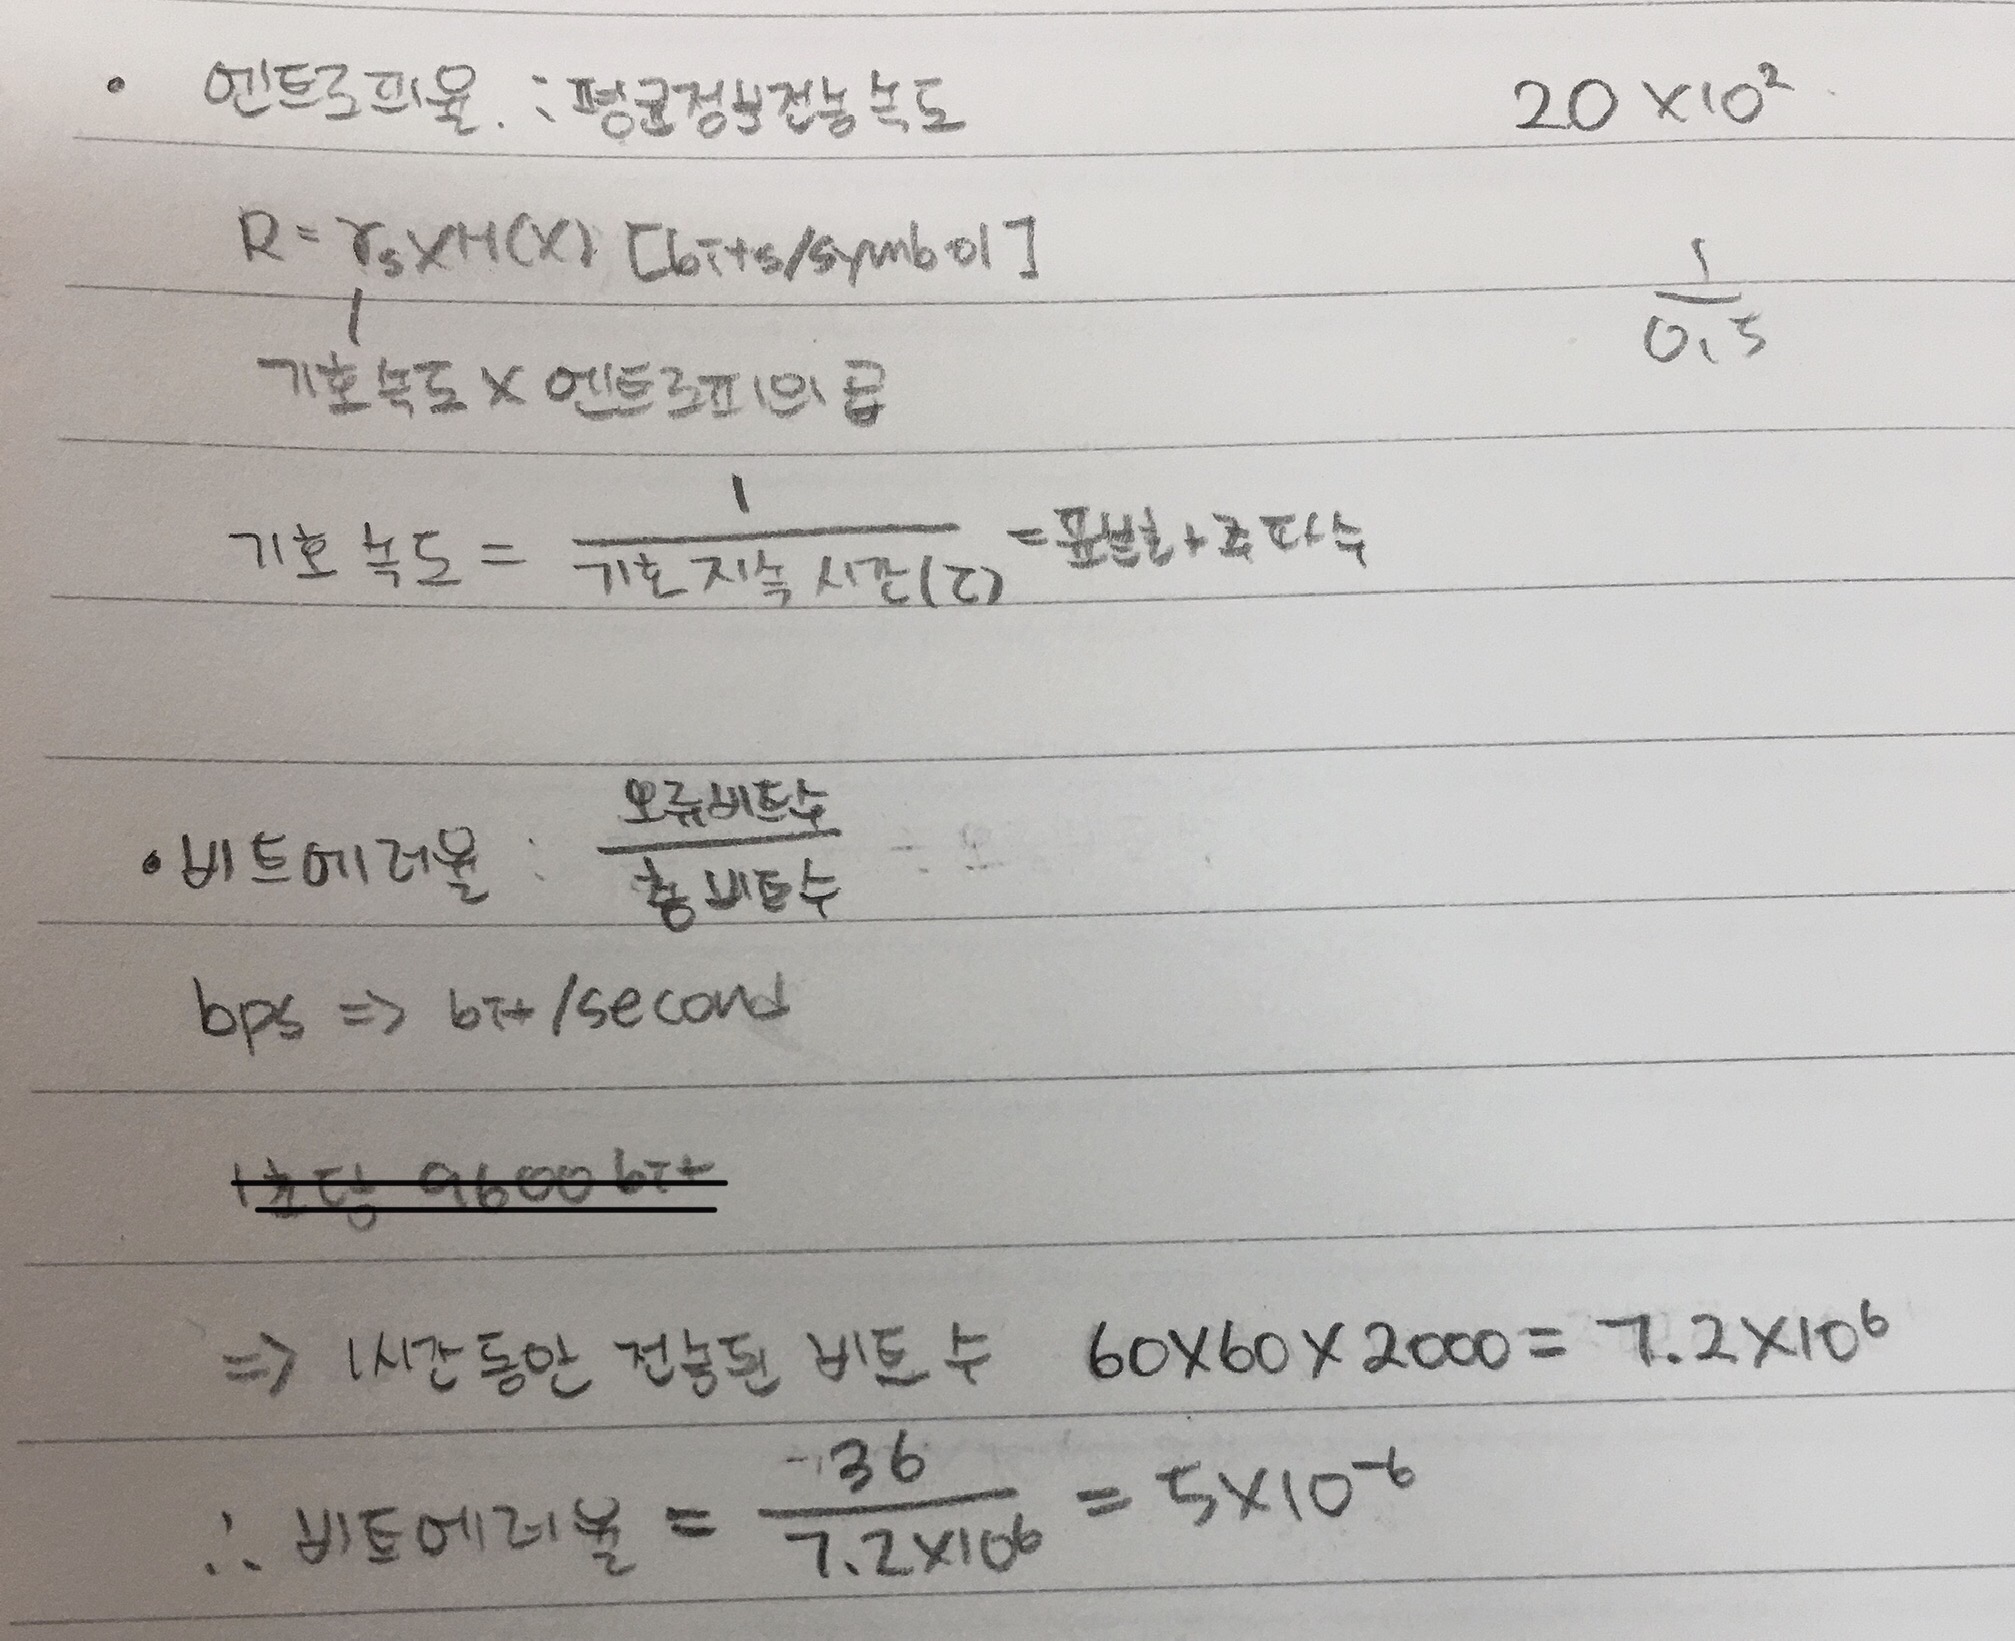 • 엔트로피율. : 평균정보전송속도
20 × 10²
R = rₛ × H(X) [bits/symbol]
1/0.5
기호속도 × 엔트로피의 곱
기호 속도 = 1/기호 지속 시간(τ) = 표본화 주파수
• 비트에러율 : 오류비트수/총 비트수
bps => bit/second
1초당 9600 bit
=> 1시간동안 전송된 비트 수 60×60×2000 = 7.2×10⁶
∴ 비트에러율 = 36/7.2×10⁶ = 5×10⁻⁶